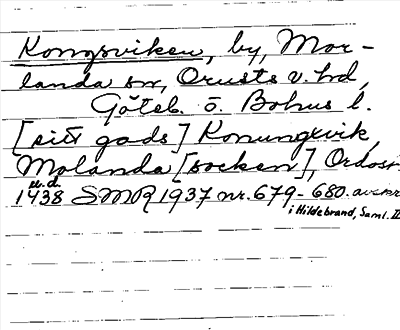 Kongsviken, by, Mor-
landa sn, Orusts v. hd,
Göteb. o. Bohus l.
[sitt gods] Konungxvik,
Molanda [socken], Ordost
u.d.
1438 SMR 1937 nr. 679-680. avskr.
i Hildebrand, Saml. II